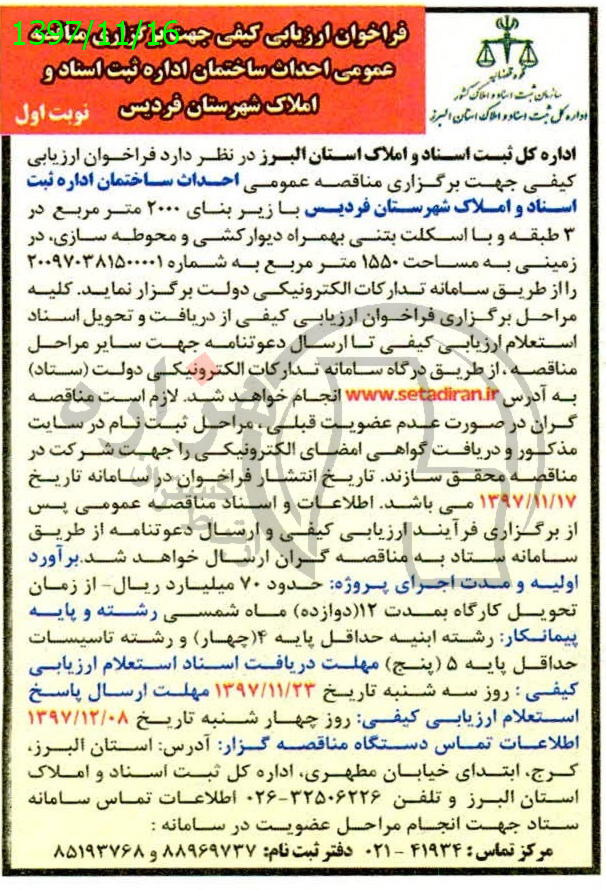 1397/11/16
فراخوان ارزیابی کیفی جهت برگزاری مناقصه
عمومی احداث ساختمان اداره ثبت اسناد و
املاک شهرستان فردیس
نوبت اول
قوه قضائیه
سازمان ثبت اسناد و املاک کشور
اداره کل ثبت اسناد و املاک استان البرز
اداره کل ثبت اسناد و املاک استان البرز در نظر دارد فراخوان ارزیابی
کیفی جهت برگزاری مناقصه عمومی احداث ساختمان اداره ثبت
اسناد و املاک شهرستان فردیس با زیر بنای ۲۰۰۰ متر مربع در
۳ طبقه و با اسکلت بتنی بهمراه دیوارکشی و محوطه سازی، در
زمینی به مساحت ۱۵۵۰ متر مربع به شماره ۲۰۰۹۷۰۳۸۱۵۰۰۰۰۱
را از طریق سامانه تدارکات الکترونیکی دولت برگزار نماید. کلیه
مراحل برگزاری فراخوان ارزیابی کیفی از دریافت و تحویل اسناد
استعلام ارزیابی کیفی تا ارسال دعوتنامه جهت سایر مراحل
مناقصه، از طریق درگاه سامانه تدارکات الکترونیکی دولت (ستاد)
به آدرس www.setadiran.ir انجام خواهد شد. لازم است مناقصه
گران در صورت عدم عضویت قبلی، مراحل ثبت نام در سایت
مذکور و دریافت گواهی امضای الکترونیکی را جهت شرکت در
مناقصه محقق سازند. تاریخ انتشار فراخوان در سامانه تاریخ
۱۳۹۷/۱۱/۱۷ می باشد. اطلاعات و اسناد مناقصه عمومی پس
از برگزاری فرآیند ارزیابی کیفی و ارسال دعوتنامه از طریق
سامانه ستاد به مناقصه گران ارسال خواهد شد. برآورد
اولیه و مدت اجرای پروژه: حدود ۷۰ میلیارد ریال- از زمان
تحویل کارگاه بمدت ۱۲(دوازده) ماه شمسی رشته و پایه
پیمانکار: رشته ابنیه حداقل پایه ۴(چهار) و رشته تاسیسات
حداقل پایه ۵ (پنج) مهلت دریافت اسناد استعلام ارزیابی
کیفی: روز سه شنبه تاریخ ۱۳۹۷/۱۱/۲۳ مهلت ارسال پاسخ
استعلام ارزیابی کیفی: روز چهار شنبه تاریخ ۱۳۹۷/۱۲/۰۸
اطلاعات تماس دستگاه مناقصه گزار: آدرس: استان البرز،
کرج، ابتدای خیابان مطهری، اداره کل ثبت اسناد و املاک
استان البرز و تلفن ۳۲۵۰۶۲۲۶-۰۲۶ اطلاعات تماس سامانه
ستاد جهت انجام مراحل عضویت در سامانه :
مرکز تماس: ۴۱۹۳۴ -۰۲۱ دفتر ثبت نام: ۸۸۹۶۹۷۳۷ و ۸۵۱۹۳۷۶۸
هزاره